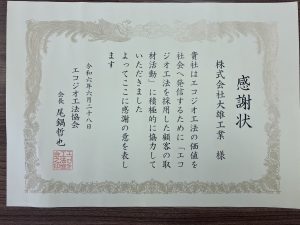 感謝状
株式会社大雄工業 様
貴社はエコジオ工法の価値を
社会へ発信するために「エコ
ジオ工法を採用した顧客の取
材活動」に積極的に協力して
いただきました
よってここに感謝の意を表し
ます
令和六年六月二十八日
エコジオ工法協会
会長 尾鍋哲也